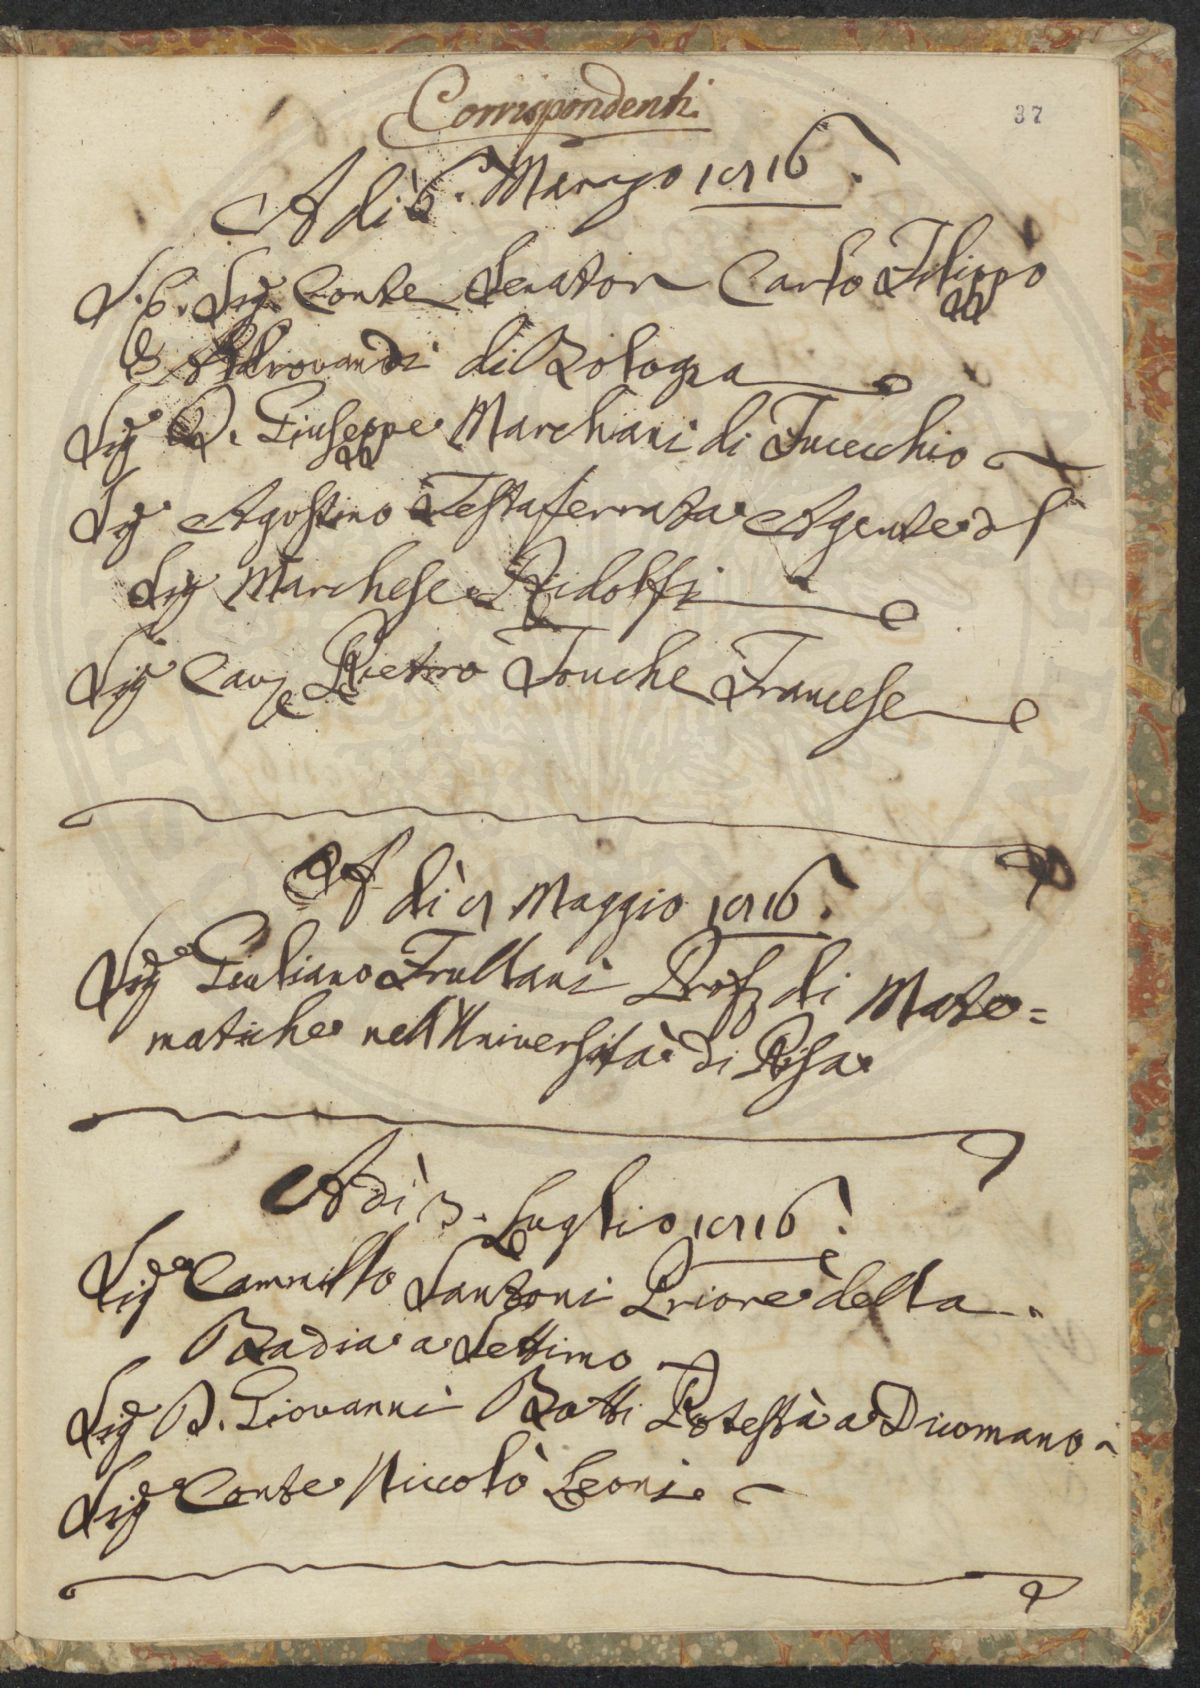 Corrispondenti
37
A dì 6. Marzo 1716.
S. E. Sig.r Conte Senator Carlo Filippo
Aldrovandi di Bologna
Sig.r D. Giuseppe Marchiani di Fucecchio
Sig.r Agostino Testaferrata Agente del
Sig.r Marchese Ridolfi
Sig.r Cav.e Pietro Touche Francese
A dì 7 Maggio 1716.
Sig.r Giuliano Frullani Prof. di Mate=
matiche nell'Università di Pisa
A dì 3. Luglio 1716.
Sig.r Cammillo Santoni Priore della
Badia a Settimo
Sig.r D. Giovanni Batti Potestà a Dicomano
Sig.r Conte Niccolò Leoni